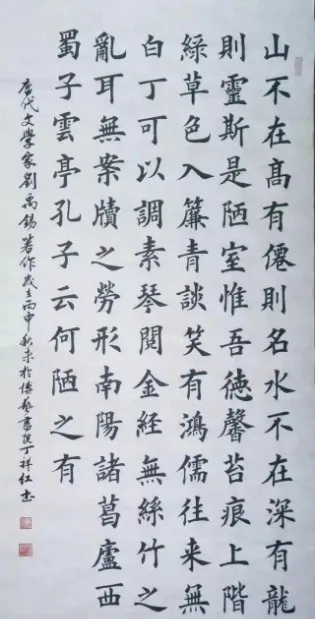 山不在髙有僊則名水不在深有龍
則靈斯是陋室惟吾徳馨苔痕上階
綠草色入簾青談笑有鴻儒往来無
白丁可以調素琴閱金経無絲竹之
亂耳無案牘之勞形南陽諸葛廬西
蜀子雲亭孔子云何陋之有
唐代文學家劉禹錫著作歲在丙申秋末於博藝書院丁祥红书